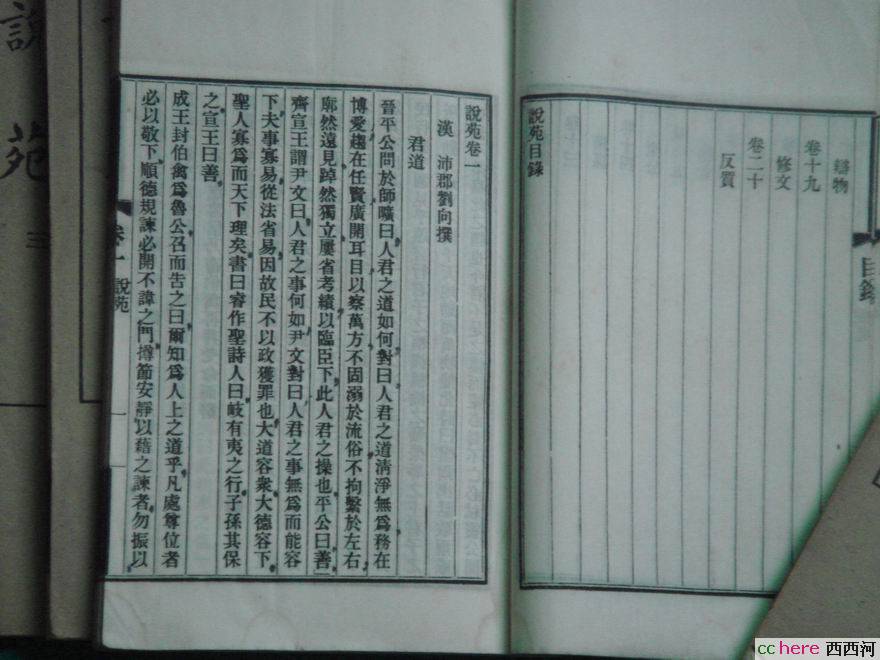 辯物
卷十九
修文
卷二十
反質
說苑目錄
目錄
說苑卷一
漢 沛郡劉向撰
君道
晉平公問於師曠曰人君之道如何對曰人君之道清淨無爲務在
博愛趨在任賢廣開耳目以察萬方不固溺於流俗不拘繫於左右
廓然遠見踔然獨立屢省考績以臨臣下此人君之操也平公曰善
齊宣王謂尹文曰人君之事何如尹文對曰人君之事無爲而能容
下夫事寡易從法省易因故民不以政獲罪也大道容衆大德容下
聖人寡爲而天下理矣書曰睿作聖詩人曰岐有夷之行子孫其保
之宣王曰善
成王封伯禽爲魯公召而告之曰爾知爲人上之道乎凡處尊位者
必以敬下順德規諫必開不諱之門撙節安靜以藉之諫者勿振以
卷一
說苑
一
說苑
三
cchere 西西河